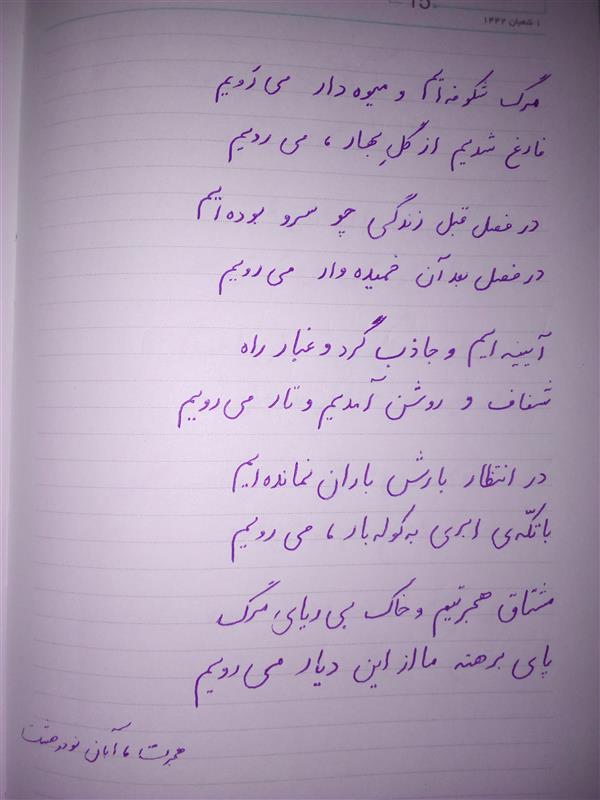 15
۱ شعبان ۱۴۴۲
مرگ شکوفه‌ایم و میوه دار می رَویم
فارغ شدیم از گلِ بهار ، می رویم
در فصل قبل زندگی چو سرو بوده ایم
در فصل بعد آن خمیده وار می رویم
آیینه ایم و جاذب گرد و غبار راه
شفاف و روشن آمدیم و تار می رویم
در انتظار بارش باران نمانده ایم
با تکّه‌ی ابری به کوله بار ، می رویم
مشتاق هجرتیم و خاک بی ریای مرگ
پای برهنه ما از این دیار می رویم
هجرت ، آبان نود و هشت